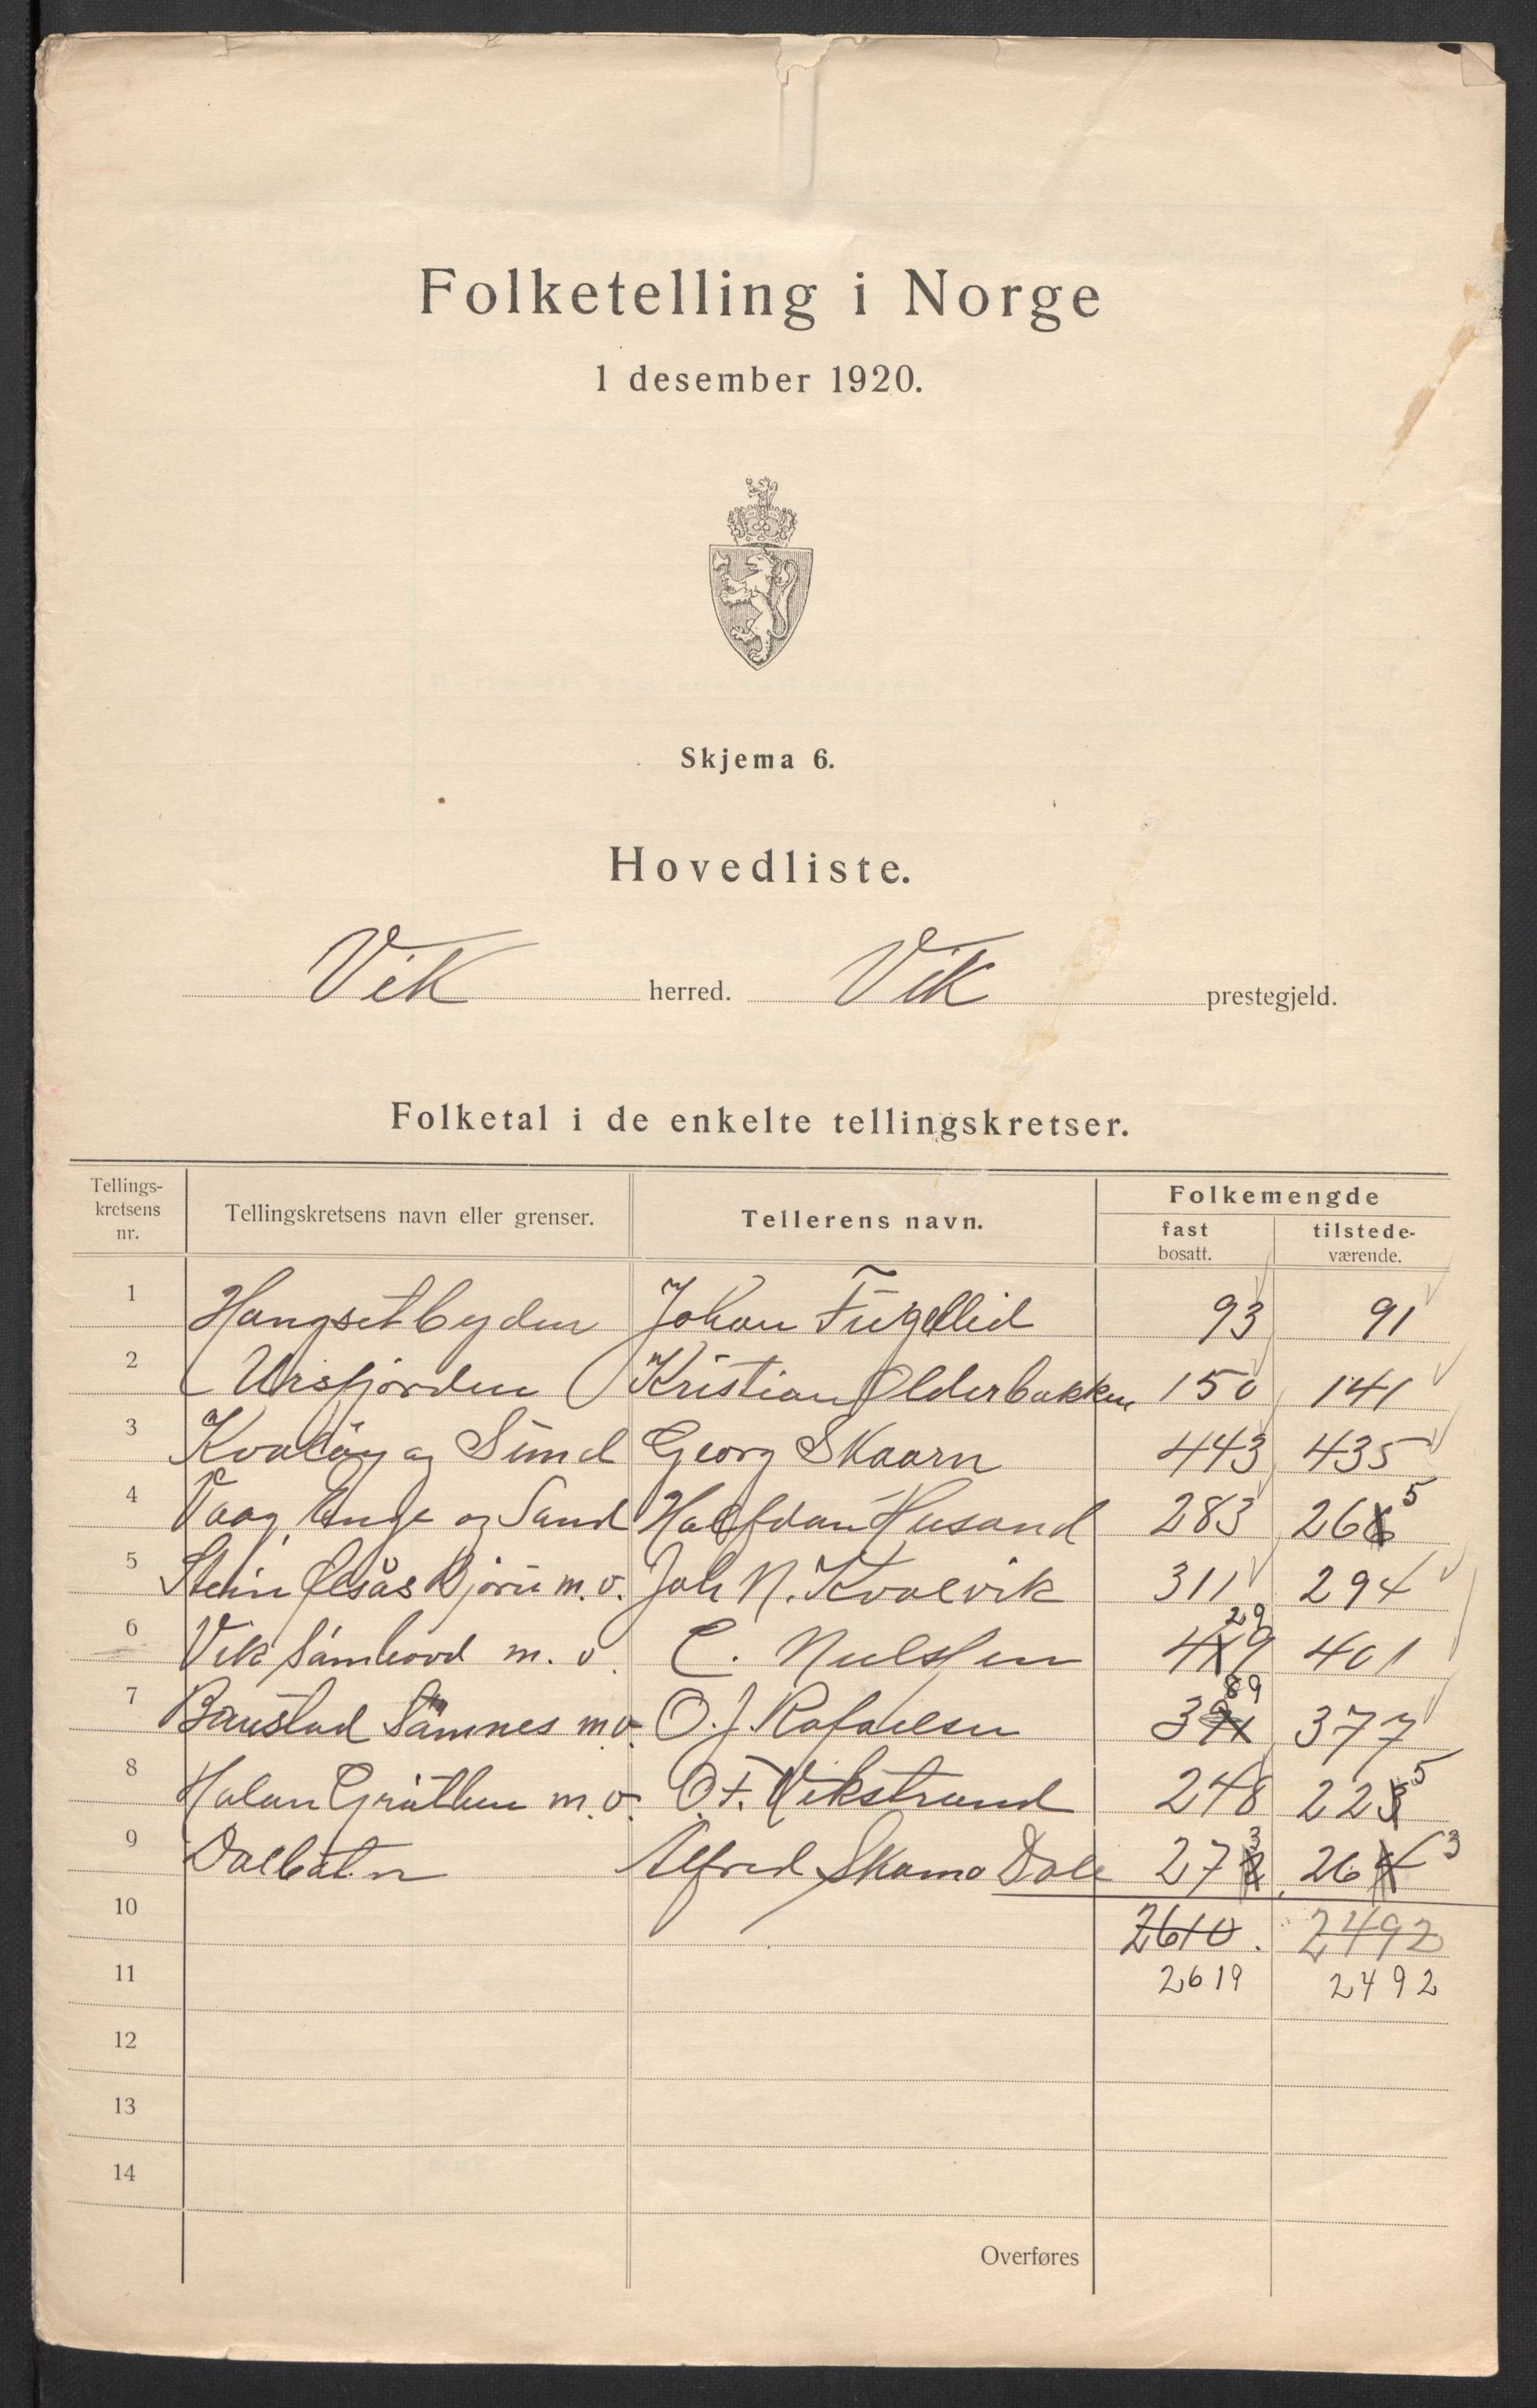 Folketelling i Norge
1 desember 1920.
Skjema 6.
Hovedliste.
Vik herred. Vik prestegjeld.
Folketal i de enkelte tellingskretser.
Tellings-
kretsens
nr.
Tellingskretsens navn eller grenser.
Tellerens navn.
Folkemengde
fast
bosatt.
tilstede-
værende.
1 Hongsetbygden Johan Fugellid 93 91
2 Ursfjorden Kristian Olderbakken 150 141
3 Kvaløy og Sund Georg Skaarn 443 435
4 Vaag, Enge og Sand Halfdan Husand 283 266 5
5 Stein Olsås Bjørn m.v. Joh N. Kvalvik 311 294
6 Vik m. v. C. 419 29 401
7 Sämnes m.v. O. J. Rafaelsen 391 89 377
8 Halan m.v. O. F. Vikstrand 248 223 5
9 Alfred Skamo Dale 272 3 264 3
10 2610. 2492
11 2619 2492
12
13
14
Overføres